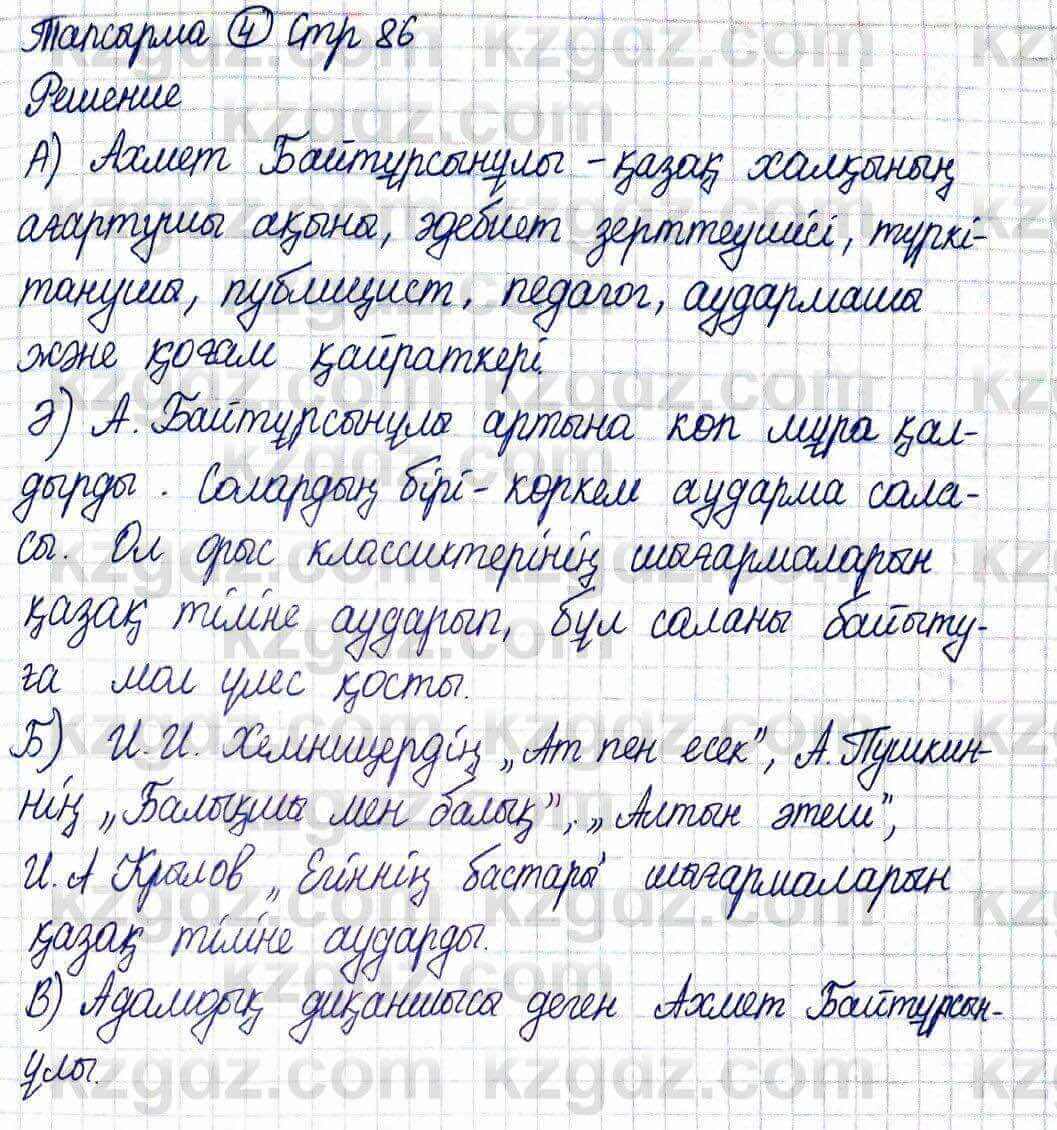 Тапсырма 4 Стр 86
Решение
А) Ахмет Байтұрсынұлы - қазақ халқының
ағартушы ақыны, әдебиет зерттеушісі, түркі-
танушы, публицист, педагог, аудармашы
және қоғам қайраткері.
Ә) А. Байтұрсынұлы артына көп мұра қал-
дырды. Солардың бірі - көркем аударма сала-
сы. Ол орыс классиктерінің шығармаларын
қазақ тіліне аударып, бұл саланы байыту-
ға мол үлес қосты.
Б) И.И. Хемницердің „Ат пен есек", А. Пушкин-
нің „Балықшы мен балық", „Алтын әтеш",
И.А Крылов „Егіннің бастары" шығармаларын
қазақ тіліне аударды.
В) Адамдық диқаншысы деген Ахмет Байтұрсын-
ұлы.
kzgdz.com